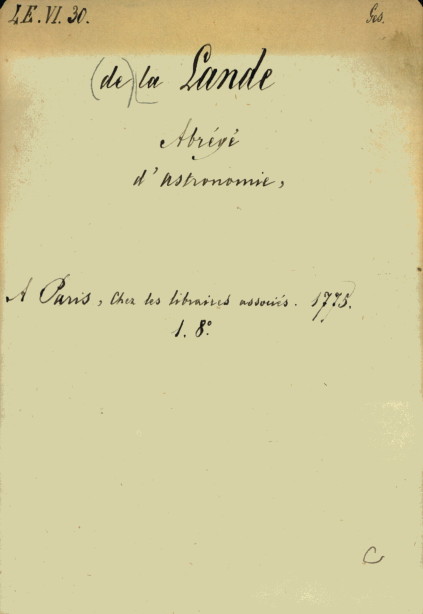 LE.VI.30. Ges.
(de) la Lande
Abrégé
d'astronomie,
A Paris, Chez les libraires associés. 1775.
1. 8°.
C